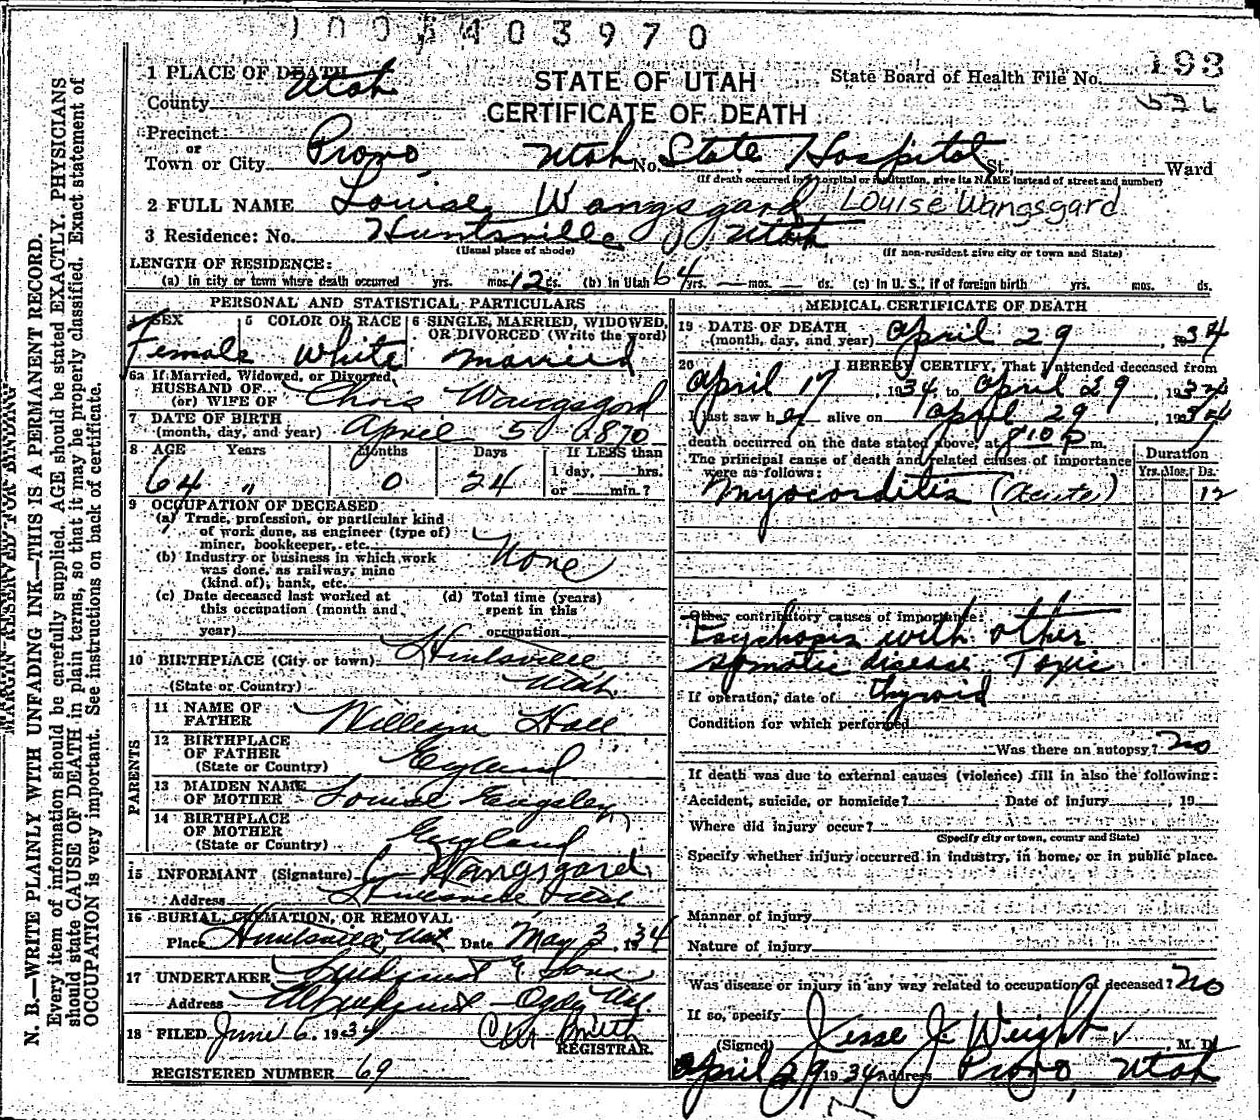 1003403970
193
1 PLACE OF DEATH
County Utah
STATE OF UTAH
CERTIFICATE OF DEATH
State Board of Health File No.
Precinct
or
Town or City Provo, Utah No. State Hospital St., Ward
(If death occurred in hospital or institution, give its NAME instead of street and number)
2 FULL NAME Louise Wangsgard Louise Wangsgard
3 Residence: No. Huntsville Utah
(Usual place of abode) (If non-resident give city or town and State)
LENGTH OF RESIDENCE:
(a) In city or town where death occurred yrs. mos. 12 ds. (b) In Utah 64 yrs. — mos. — ds. (c) In U. S., if of foreign birth yrs. mos. ds.
PERSONAL AND STATISTICAL PARTICULARS
4 SEX Female
5 COLOR OR RACE white
6 SINGLE, MARRIED, WIDOWED, OR DIVORCED (Write the word) married
6a If Married, Widowed, or Divorced
HUSBAND OF
(or) WIFE OF Chris Wangsgard
7 DATE OF BIRTH
(month, day, and year) April 5 1870
8 AGE Years Months Days If LESS than
1 day, hrs.
or min.?
64 " 0 24
9 OCCUPATION OF DECEASED
(a) Trade, profession, or particular kind
of work done, as engineer (type of)
miner, bookkeeper, etc.
None
(b) Industry or business in which work
was done, as railway, mine
(kind of), bank, etc.
(c) Date deceased last worked at
this occupation (month and
year)
(d) Total time (years)
spent in this
occupation
10 BIRTHPLACE (City or town) Huntsville
(State or Country) Utah
PARENTS
11 NAME OF
FATHER William Hall
12 BIRTHPLACE
OF FATHER
(State or Country) England
13 MAIDEN NAME
OF MOTHER Louise
14 BIRTHPLACE
OF MOTHER
(State or Country) England
15 INFORMANT (Signature) C Wangsgard
Address Huntsville Utah
16 BURIAL, CREMATION, OR REMOVAL
Place Huntsville, Utah Date May 3, 1934
17 UNDERTAKER Lindquist & Sons
Address Ogden
18 FILED June 6, 1934
REGISTRAR.
REGISTERED NUMBER 69
MEDICAL CERTIFICATE OF DEATH
19 DATE OF DEATH
(month, day, and year) April 29, 1934
20 I HEREBY CERTIFY, That I attended deceased from
April 17, 1934, to April 29, 1934
I last saw her alive on April 29, 1934
death occurred on the date stated above, at 8 10 P m.
The principal cause of death and related causes of importance
were as follows:
Duration
Yrs. Mos. Ds.
Myocarditis (Acute) 12
Other contributory causes of importance:
Psychosis with other
somatic disease Toxic
thyroid
If operation, date of
Condition for which performed
Was there an autopsy? No
If death was due to external causes (violence) fill in also the following:
Accident, suicide, or homicide? Date of injury , 19
Where did injury occur?
(Specify city or town, county and State)
Specify whether injury occurred in industry, in home, or in public place.
Manner of injury
Nature of injury
Was disease or injury in any way related to occupation of deceased? No
If so, specify
(Signed) Jesse J. Weight, M. D.
April 29 1934 Address Provo, Utah
MARGIN RESERVED FOR BINDING
N. B.—WRITE PLAINLY WITH UNFADING INK—THIS IS A PERMANENT RECORD.
Every item of information should be carefully supplied. AGE should be stated EXACTLY. PHYSICIANS
should state CAUSE OF DEATH in plain terms, so that it may be properly classified. Exact statement of
OCCUPATION is very important. See instructions on back of certificate.